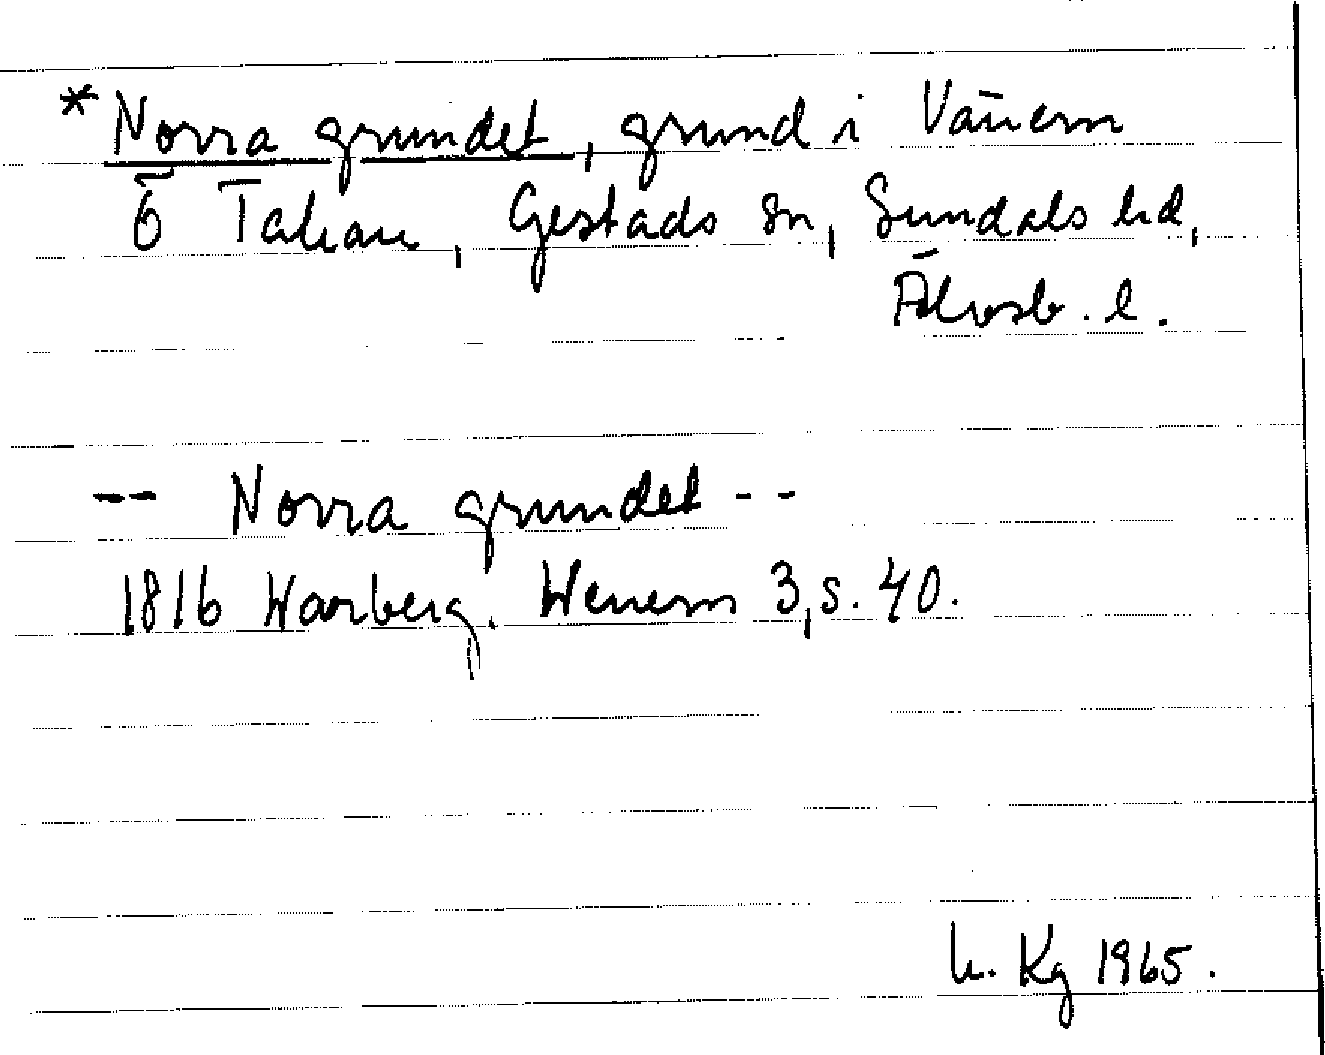 * Norra grundet, grund i Vänern
Ö Takan, Gestads sn, Sundals hd,
Älvsb. l.
-- Norra grundet --
1816 Warberg. Wenern 3, s. 40.
Kg 1965.